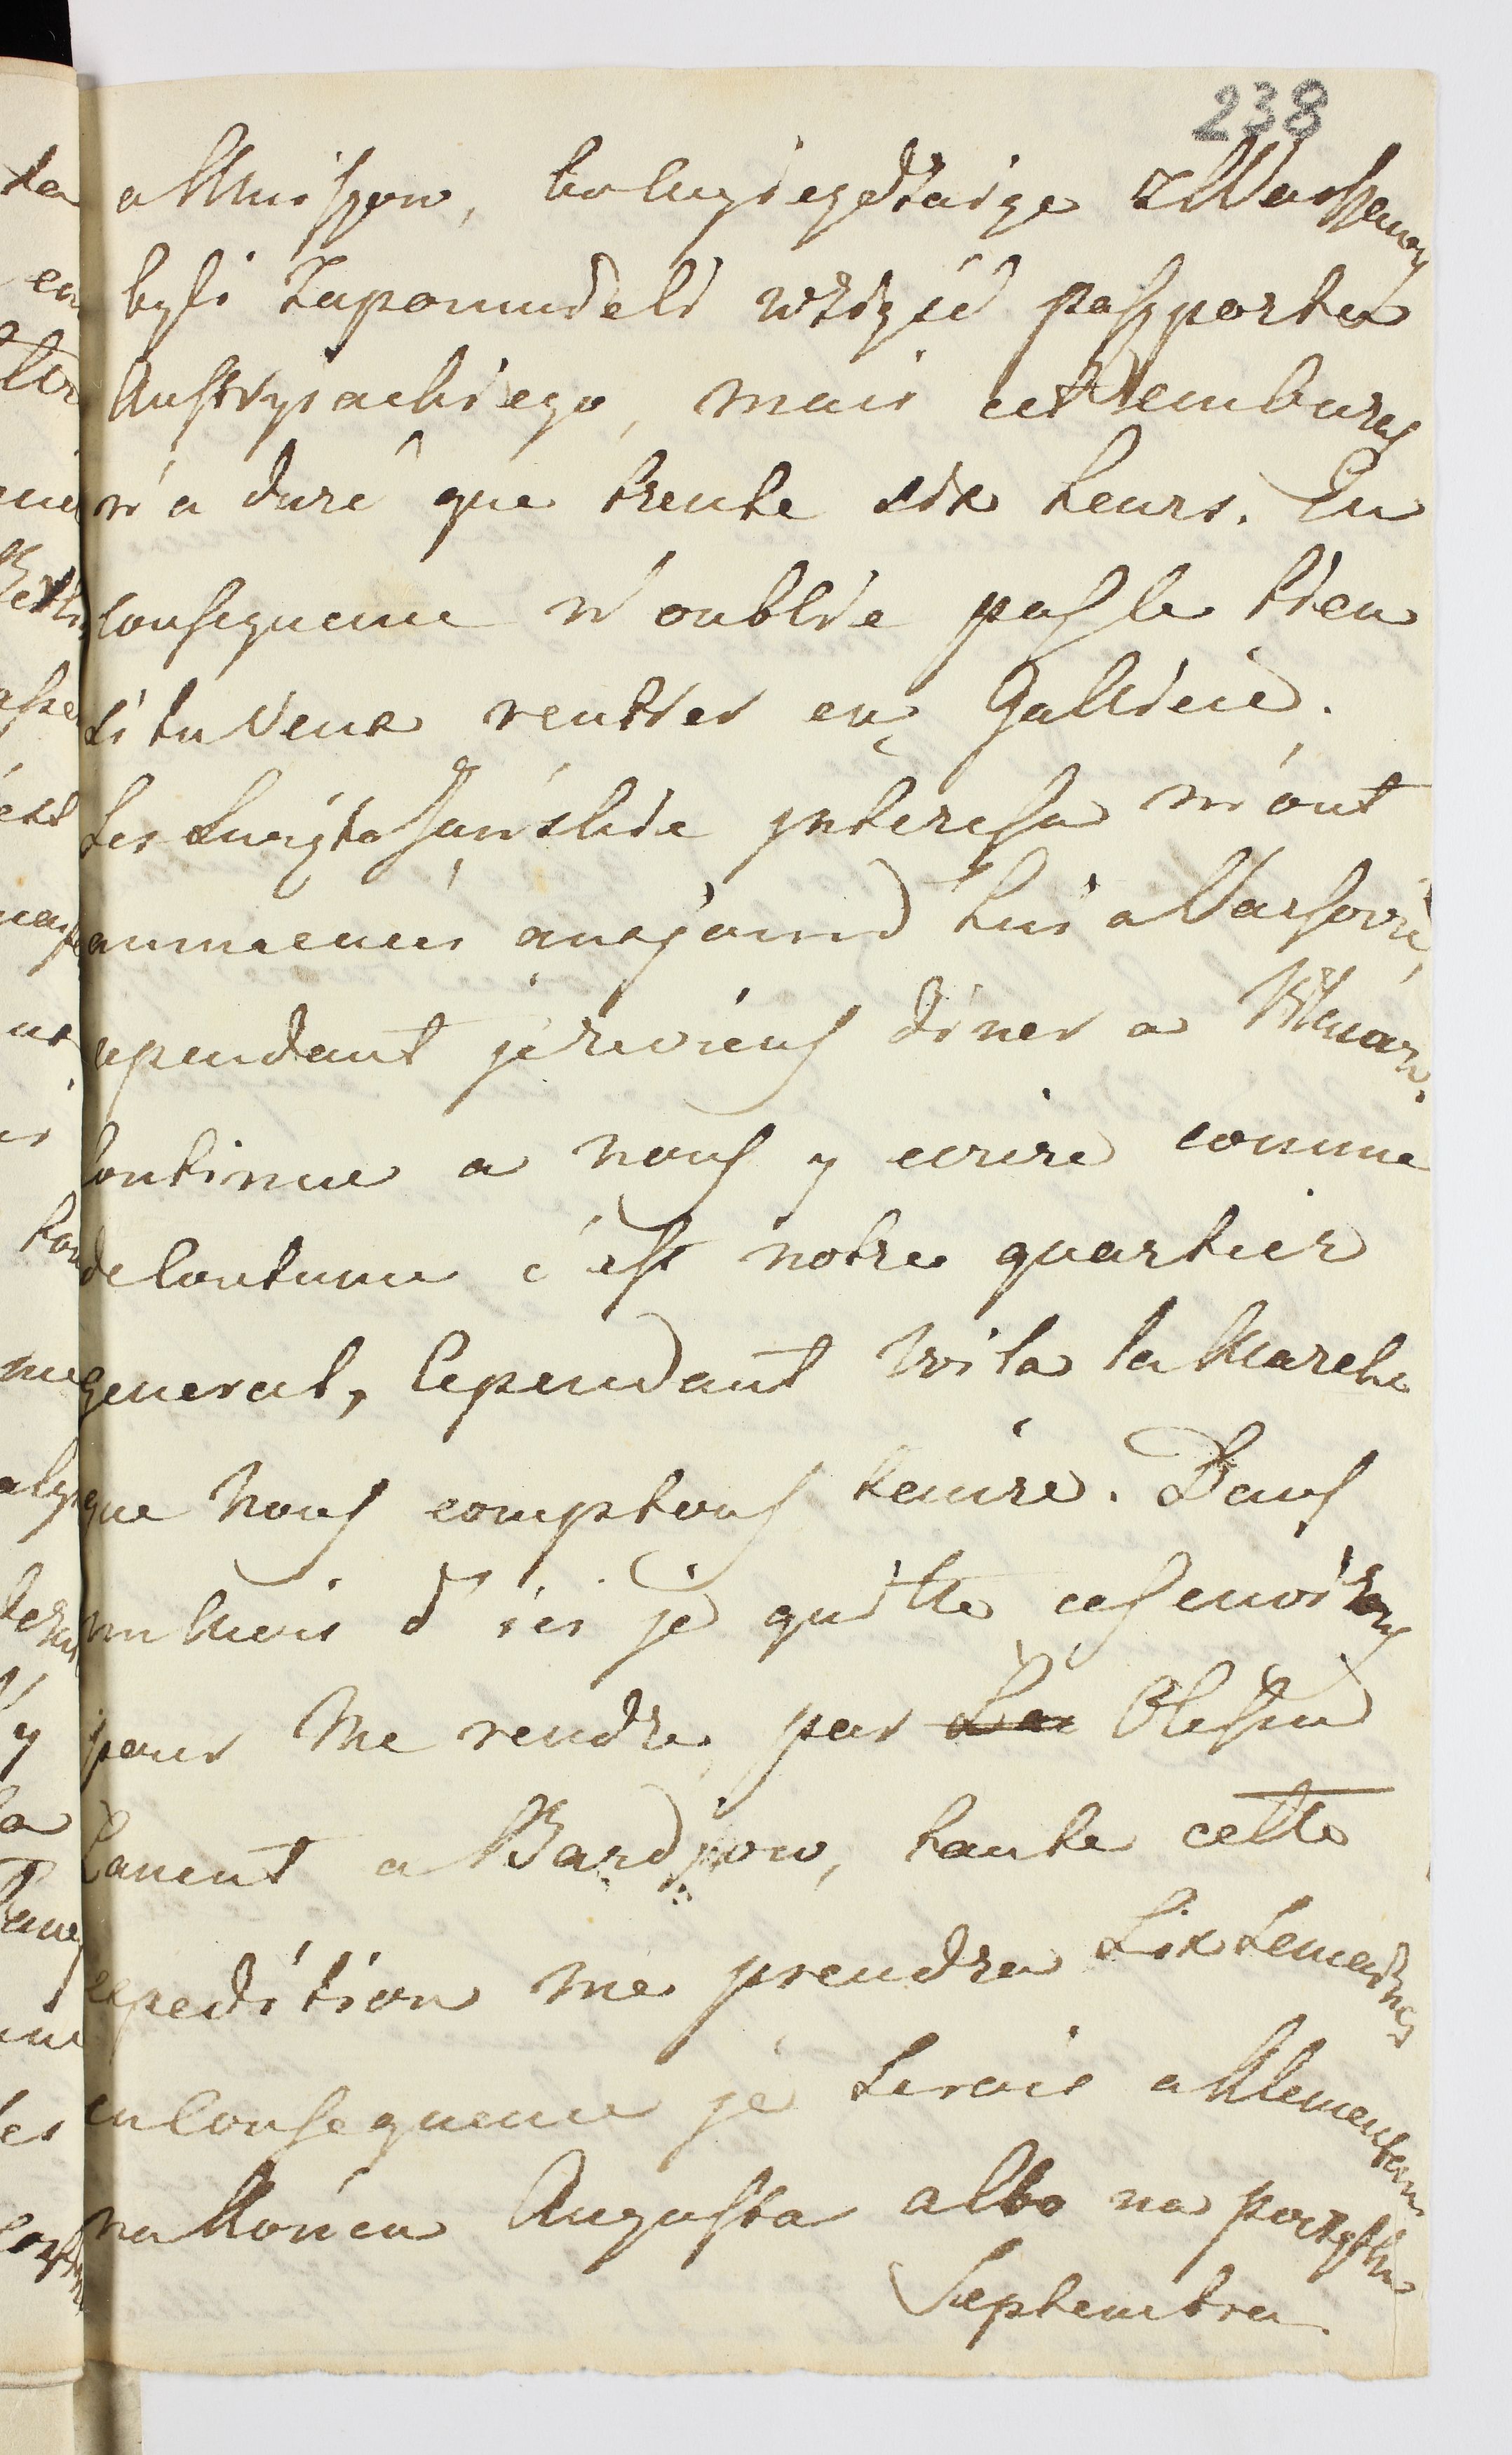 238
a Kmiszow, bo wyieżdżaiąc z Warszawy
byli zapomnieli wziąść paszportu
Austryiackiego, mais cet embaras
n'a duré que trente six heurs. En
consequence n'oublie pas le tien
si tu veux rentrer en Gallicie.
Les Swięto Jańskie interessa m'ont
ammenés aujourd'hui a Varsovie,
cependant je reviens diner a Vilanow.
Continue a nous y ecrire comme
de coutume c'est notre quartier
general, Cependant voila la Marche
que nous comptons tenire. Dans
un Mois d'ici je quitte ces environs
pour me rendre par Olesin
Lancut a Bardjow, toute cette
expedition me prendra six semaines
en consequence je serois a Klementow
na końcu Augusta albo na początku
Septembra